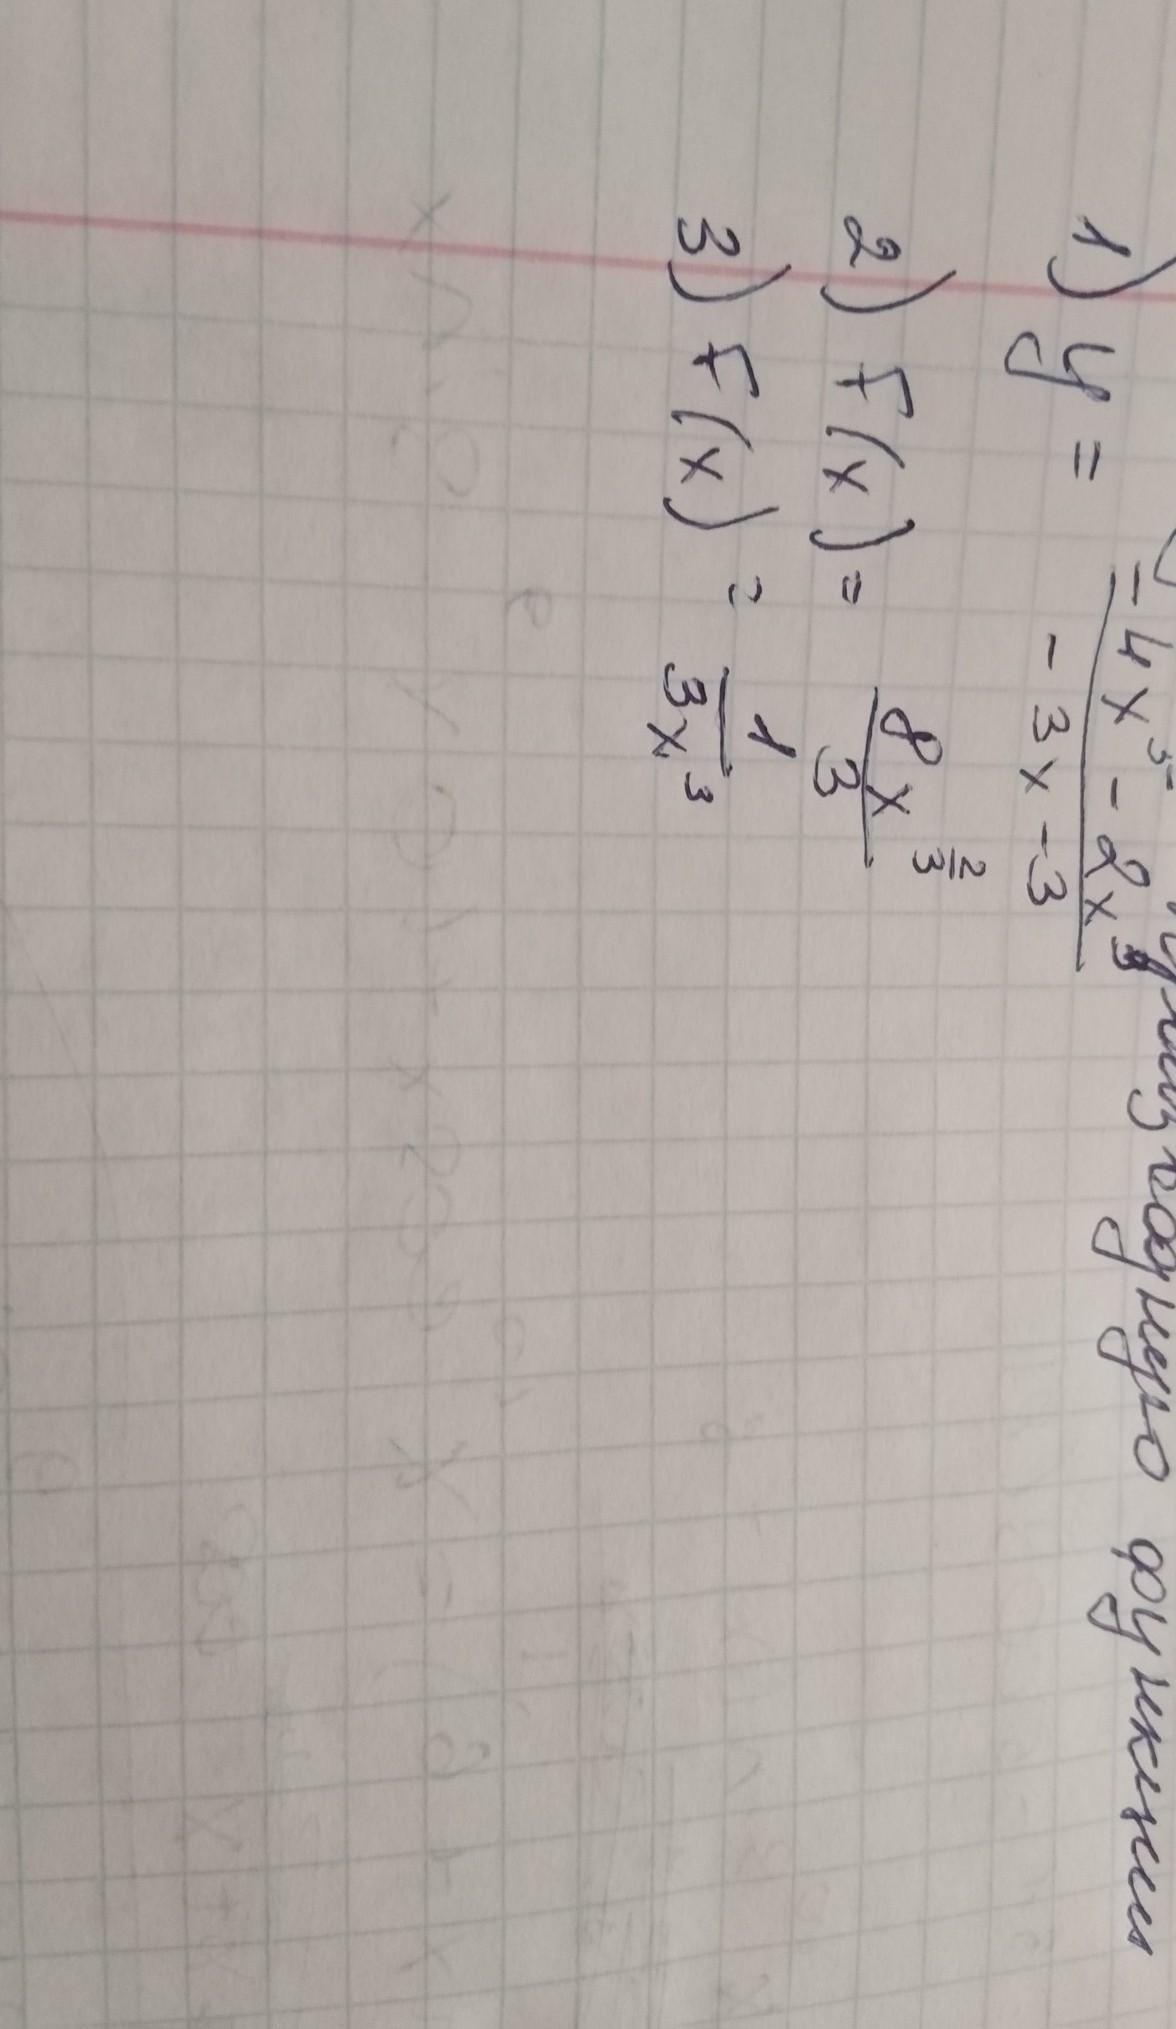 производную функции
1) y = \frac{-4x^5 - 2x^3}{-3x - 3}
2) F(x) = \frac{8x^{\frac{2}{3}}}{3}
3) F(x) = \frac{1}{3x^3}